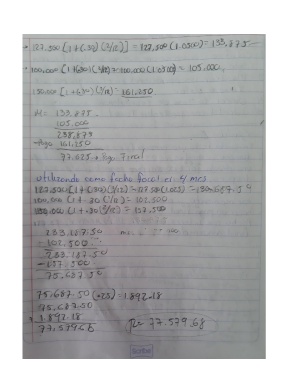 127,500 (1+(.30)(2/12)) = 127,500 (1.0500) = 133,875
100,000 (1+(.30)(2/12)) = 100,000 (1.0500) = 105,000
150,000 [1+(.30)(3/12)] = 161,250
133,875.
105,000
238,875
161,250
77,625 → Pago Final
utilizando como fecha focal el 4 mes
127,500 (1+(.30)(1/12)) = 127,500 (1.025) = 130,687.50
100,000 (1+.30 (1/12)) = 102,500
150,000 (1+.30 (2/12)) = 157,500
102,500.
233,187.50
-157,500.
75,687.50
75,687.50 (.025) = 1,892.18
75,687.50
1,892.18
77,579.68
= 77,579.68